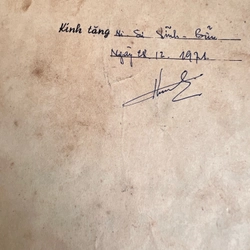 Kính tặng Hi Sĩ Vĩnh - Bửu
Ngày 28.12.1971